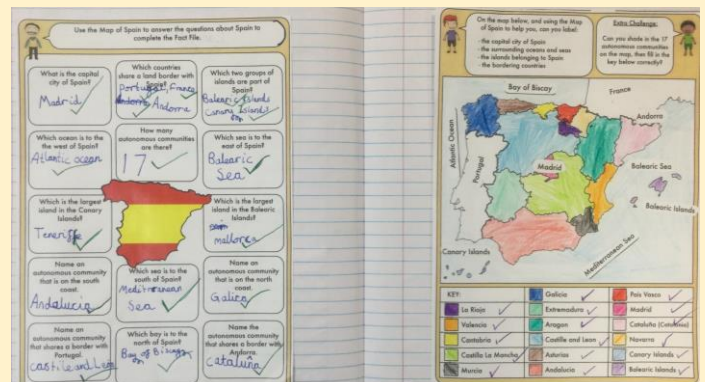 Use the Map of Spain to answer the questions about Spain to
complete the Fact File.
What is the capital
city of Spain?
Madrid
Which countries
share a land border with
Spain?
Portugal, France
Andorra Andorra
Which two groups of
islands are part of
Spain?
Balearic Islands
Canary Islands
Which ocean is to the
the west of Spain?
Atlantic ocean
How many
autonomous communities
are there?
17
Which sea is to the
east of Spain?
Balearic
Sea
Which is the largest
island in the Canary
Islands?
Teneriffe
Which is the largest
island in the Balearic
Islands?
mallorca
Name an
autonomous community
that is on the south
coast.
Andalucia
Which sea is to the
south of Spain?
Mediterranean
Sea
Name an
autonomous community
that is on the north
coast.
Galica
Name an
autonomous community
that shares a border with
Portugal.
castile and Leon
Which bay is to the
north of Spain?
Bay of Biscay
Name the
autonomous community
that shares a border with
Andorra.
Cataluña
On the map below, and using the Map
of Spain to help you, can you label:
- the capital city of Spain
- the surrounding oceans and seas
- the islands belonging to Spain
- the bordering countries
Extra Challenge:
Can you shade in the 17
autonomous communities
on the map, then fill in the
key below correctly?
Bay of Biscay
France
Andorra
Atlantic Ocean
Portugal
Madrid
Balearic Sea
Balearic Islands
Canary Islands
Mediterranean Sea
KEY:
Galicia
País Vasco
La Rioja
Extremadura
Madrid
Valencia
Aragon
Cataluña (Catalonia)
Cantabria
Castille and Leon
Navarra
Castilla La Mancha
Asturias
Canary Islands
Murcia
Andalucia
Balearic Islands